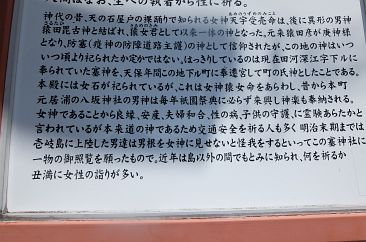 神代の昔、天の石屋戸の裸踊りで知られる女神天宇受売命は、後に異形の男神
猿田毘古神と結ばれ、猿女君として以来一体の神となった。元来猿田彦が庚神様
となり、防塞(疫神の防障道路主護)の神として信仰されたが、この地の神はいつ
いつ頃より祀られたか定かではない。はっきりしているのは現在田河深江字下ルに
奉られていた塞神を、天保年間この地下ル町に奉遷宮して町の氏神としたことである。
本殿には女石が祀られているが、これは女神猿女命をあらわし、昔から本町
元居浦の八坂神社の男神は毎年祇園祭に必らず来興し神楽も奉納される。
女神であることから良縁、安産、夫婦和合、性の病、子供の守護、に霊験あらたかと
言われているが本来道の神であるため交通安全を祈る人も多く明治末期までは
壱岐島に上陸した男達は男根を女神に見せないと怪我をするといってこの塞神社に
一物の御照覧を願ったもので。近年は島以外の間でもとみに知られ、何を祈るか
丑満に女性の詣りが多い。